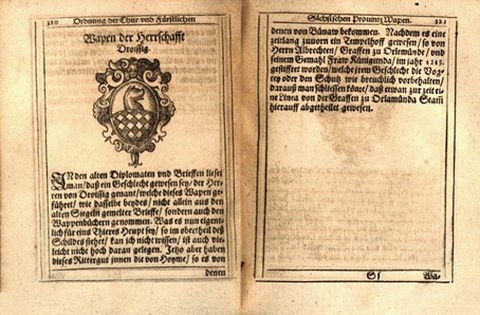 320 Ordnung der Chur vnd Fürstlichen
Wapen der Herrschafft
Droissig.
IN den alten Diplomaten vnd Brieffen lieset
man/ daß ein Geschlecht gewesen sey/ der Her-
ren von Droissig genant/ welche dieses Wapen ge-
führet/ wie dasselbe beydes/ nicht allein aus den
alten Siegeln gemelter Brieffe/ sondern auch den
Wappenbüchern genommen. Was es nun eigent-
lich für eins Thieres Heupt sey/ so im obertheil deß
Schildes stehet/ kan ich nicht wissen/ ist auch vie-
leicht nicht hoch daran gelegen. Jetzo aber haben
dieses Rittergut jnnen die von Hoyme/ so es von
denen
Sächsischen Provintz Wapen. 321
denen von Bünaw bekommen. Nachdem es eine
zeitlang zuvorn ein Tempelhoff gewesen/ so von
Herrn Albrechten/ Graffen zu Orlemünde/ vnd
seinem Gemahl Fraw Künigunda/ im jahr 1215.
gestifftet worden/ welche jrem Geschlecht die Vog-
tey oder den Schutz hierüber vorbehalten/
darauß man schliessen könte/ daß etwan zur zeit ei-
ne Linea von der Graffen zu Orlamünda Stam
hierauff abgetheilet gewesen.
Sf Wa-